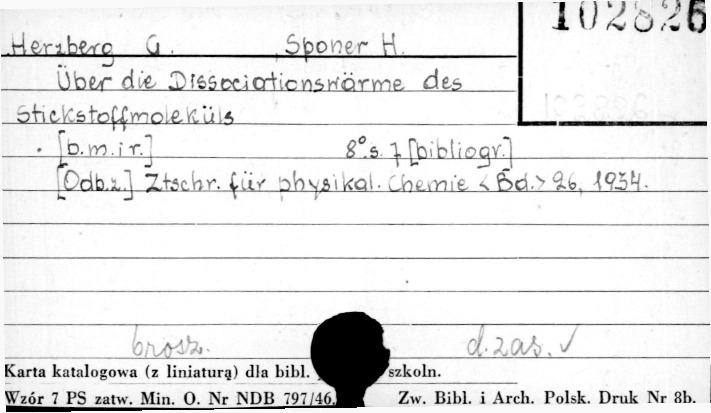 102826
Herzberg G. , Sponer H.
Über die Dissociationswärme des
Stickstoffmoleküls
[b.m.i r.] 8°.s. 7 [bibliogr.]
[Odb.z.] Ztschr. für physikal. Chemie <Bd.> 26, 1934.
brosz. d.zas. √
Karta katalogowa (z liniaturą) dla bibl. szkoln.
Wzór 7 PS zatw. Min. O. Nr NDB 797/46, Zw. Bibl. i Arch. Polsk. Druk Nr 8b.